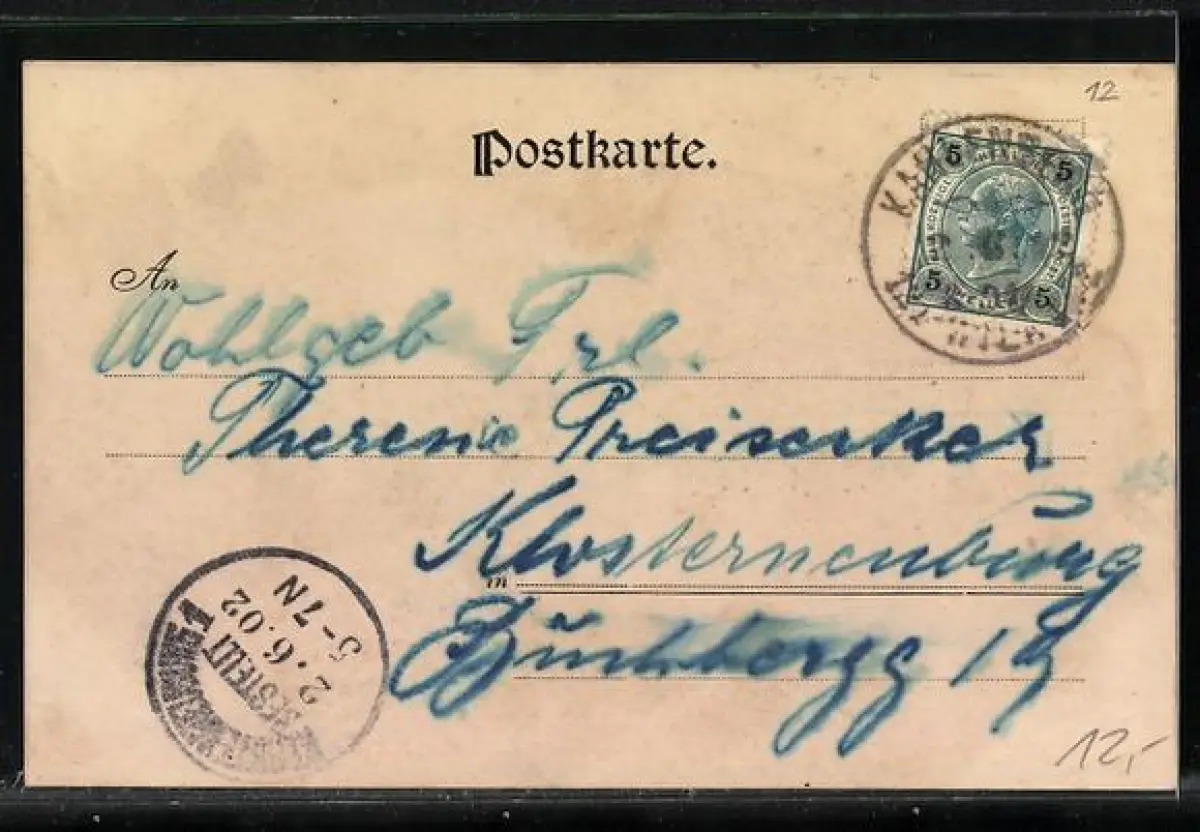 12
Postkarte.
5 5
5 5
An
Wohlgeb Frl.
Therese Preisecker
in Klosterneuburg
Buchbergg 19
BESTELLT
2.6.02
5-7N
1
12,-